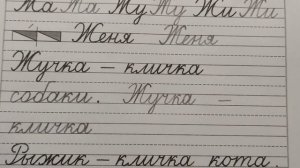 Ма Та Жу Ту Жи Жи
Женя Женя
Жучка – кличка
собаки. Жучка –
кличка
Рыжик – кличка кота.